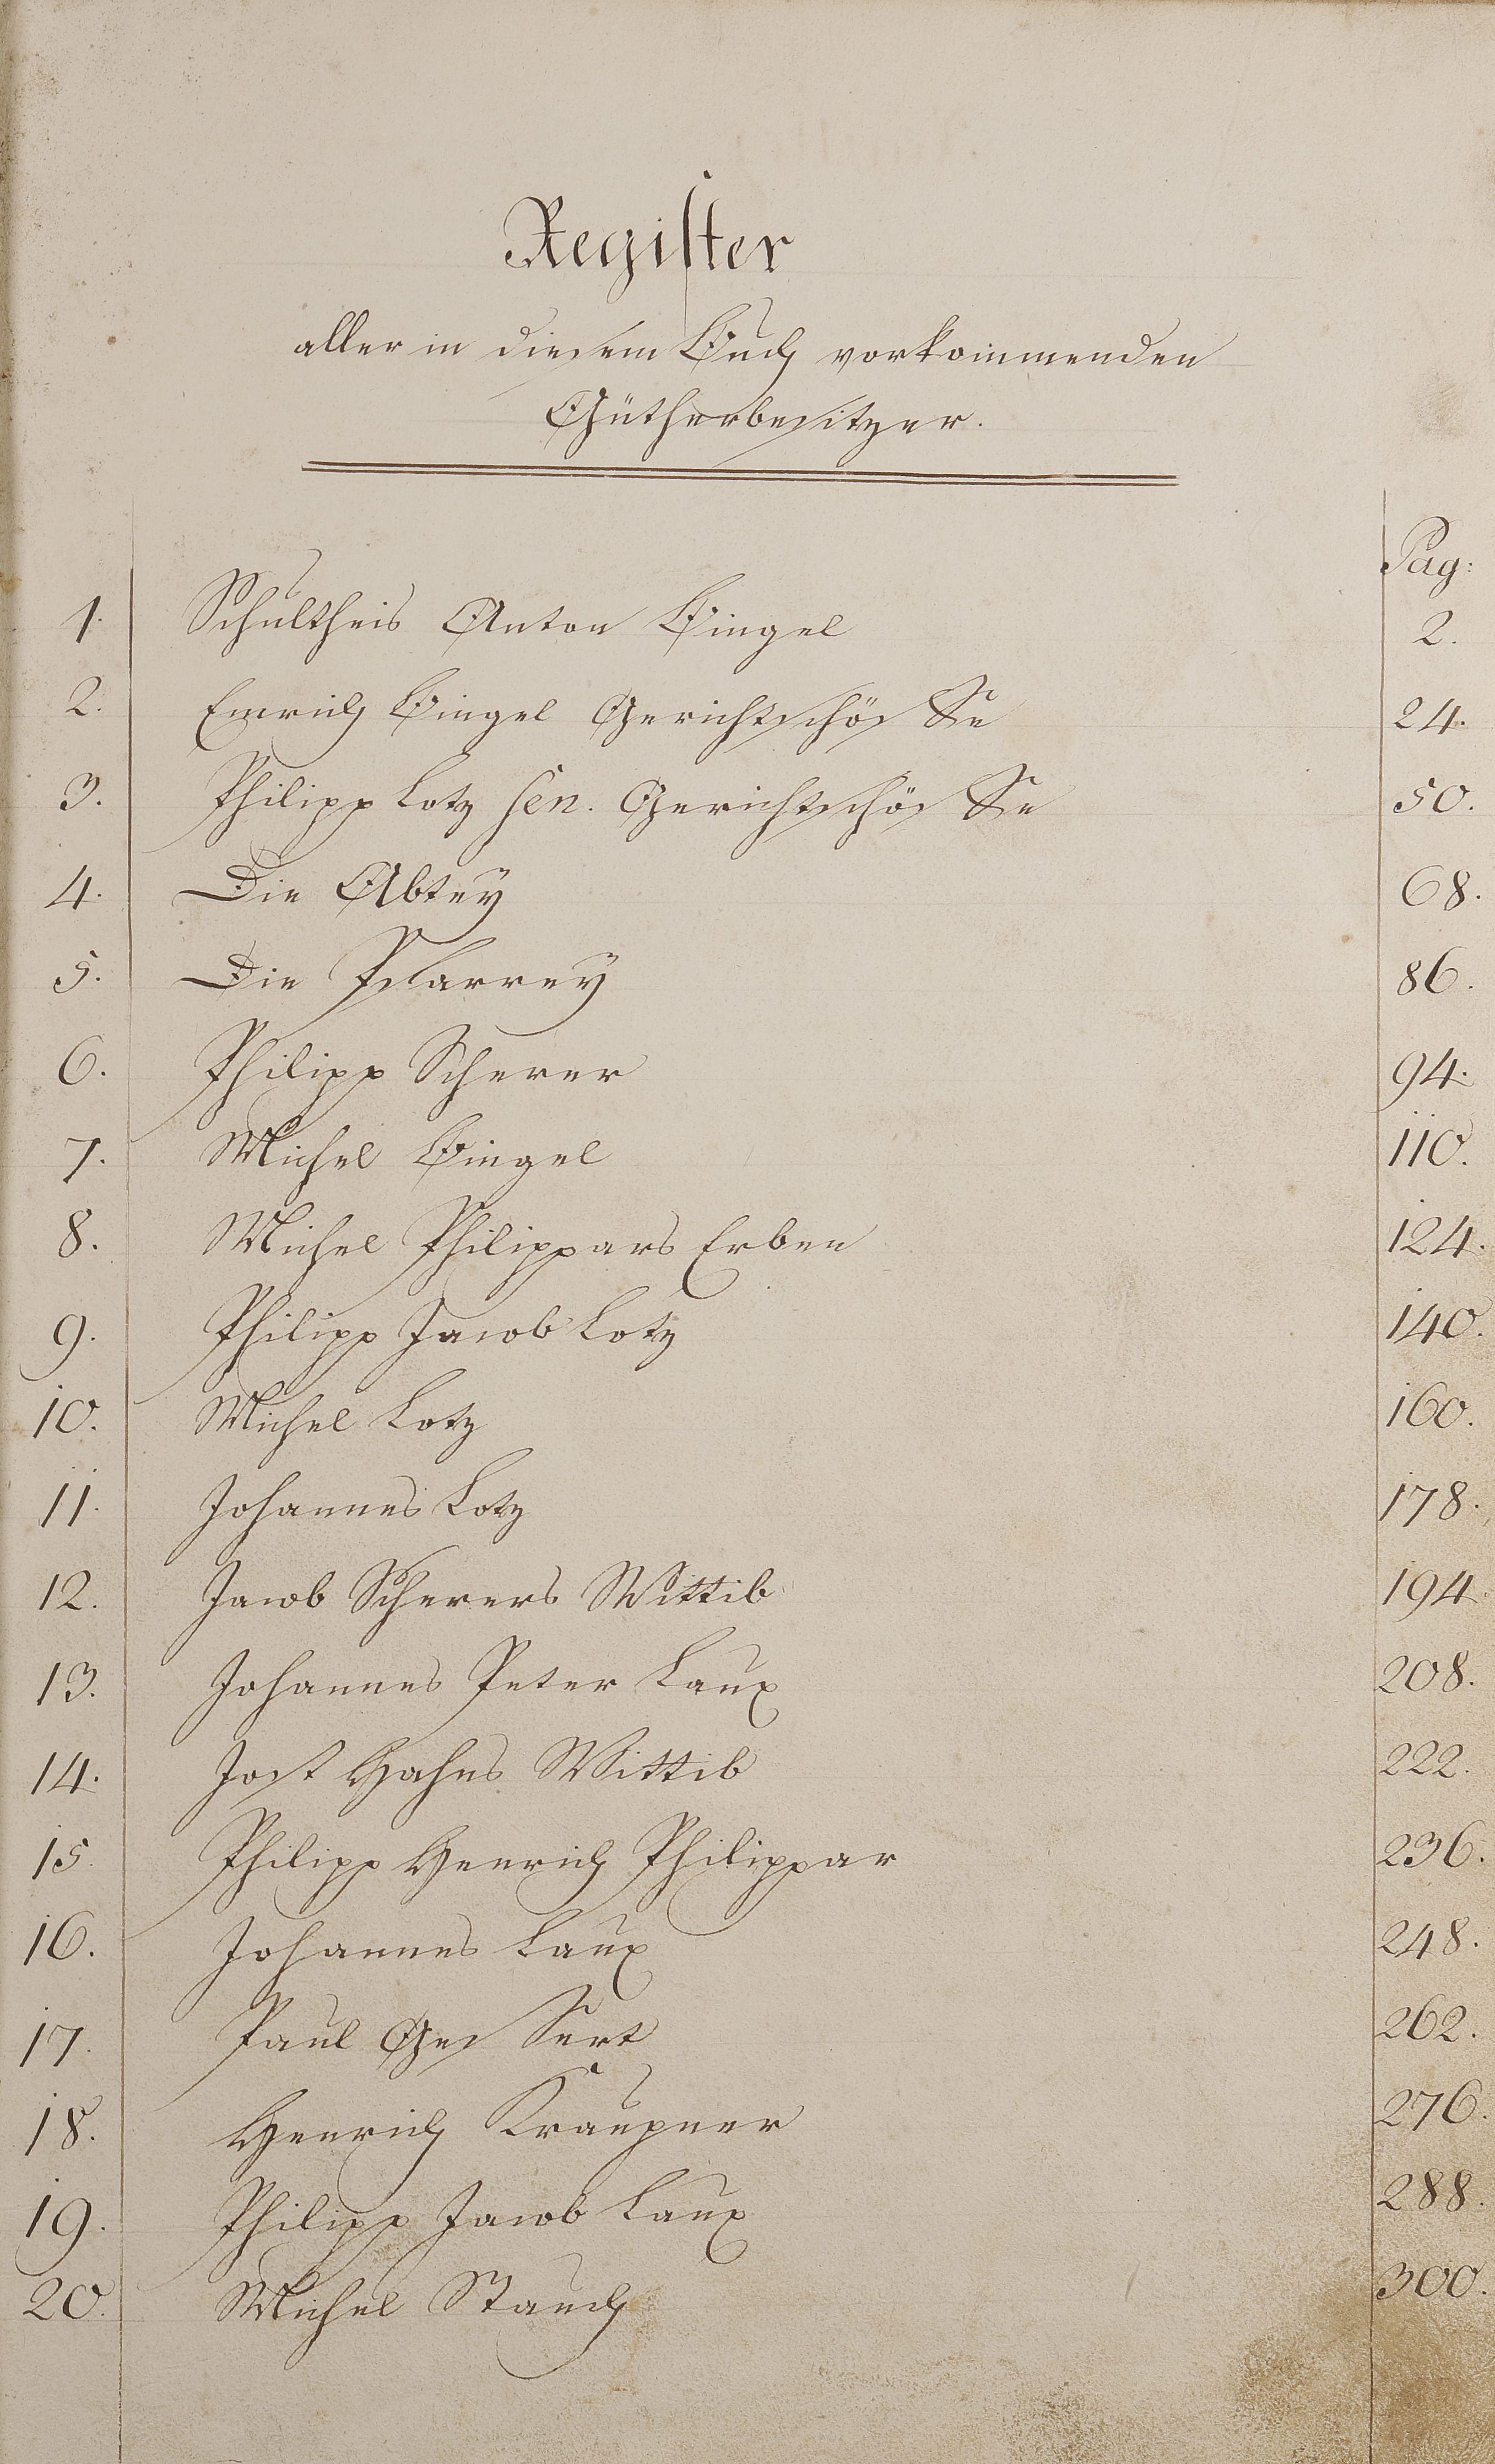 Register
aller in diesem Buch vorkommenden
Gütherbesitzer.
Pag:
1. Schultheis Anton Bingel 2.
2. Emrich Bingel Gerichtschöffe 24.
3. Philipp Lotz sen. Gerichtschöffe 50.
4. Die Abtey 68.
5. Die Pfarrey 86.
6. Philipp Scherer 94.
7. Michel Bingel 110.
8. Michel Philippars Erben 124.
9. Philipp Jacob Lotz 140.
10. Michel Lotz 160.
11. Johannes Lotz 178.
12. Jacob Scherers Wittib 194.
13. Johannes Peter Laux 208.
14. Jost Hahns Wittib 222.
15. Philipp Henrich Philippar 236.
16. Johannes Laux 248.
17. Paul 262.
18. Henrich 276.
19. Philipp Jacob Laux 288.
20. Michel Stauch 300.